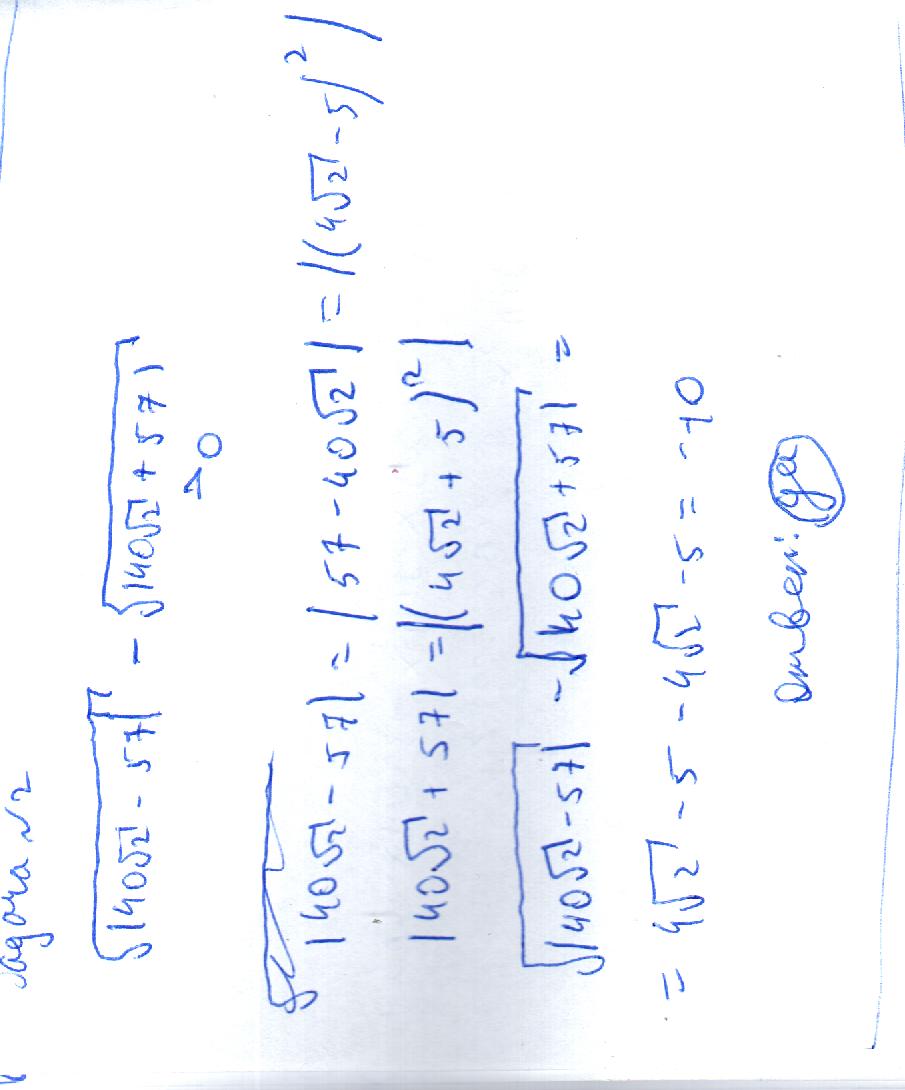 Задача №2
√|40√2 - 57| - √|40√2 + 57|
>0
|40√2 - 57| = |57 - 40√2| = |(4√2 - 5)²|
|40√2 + 57| = |(4√2 + 5)²|
√|40√2 - 57| - √|40√2 + 57| =
= 4√2 - 5 - 4√2 - 5 = -10
Ответ: да